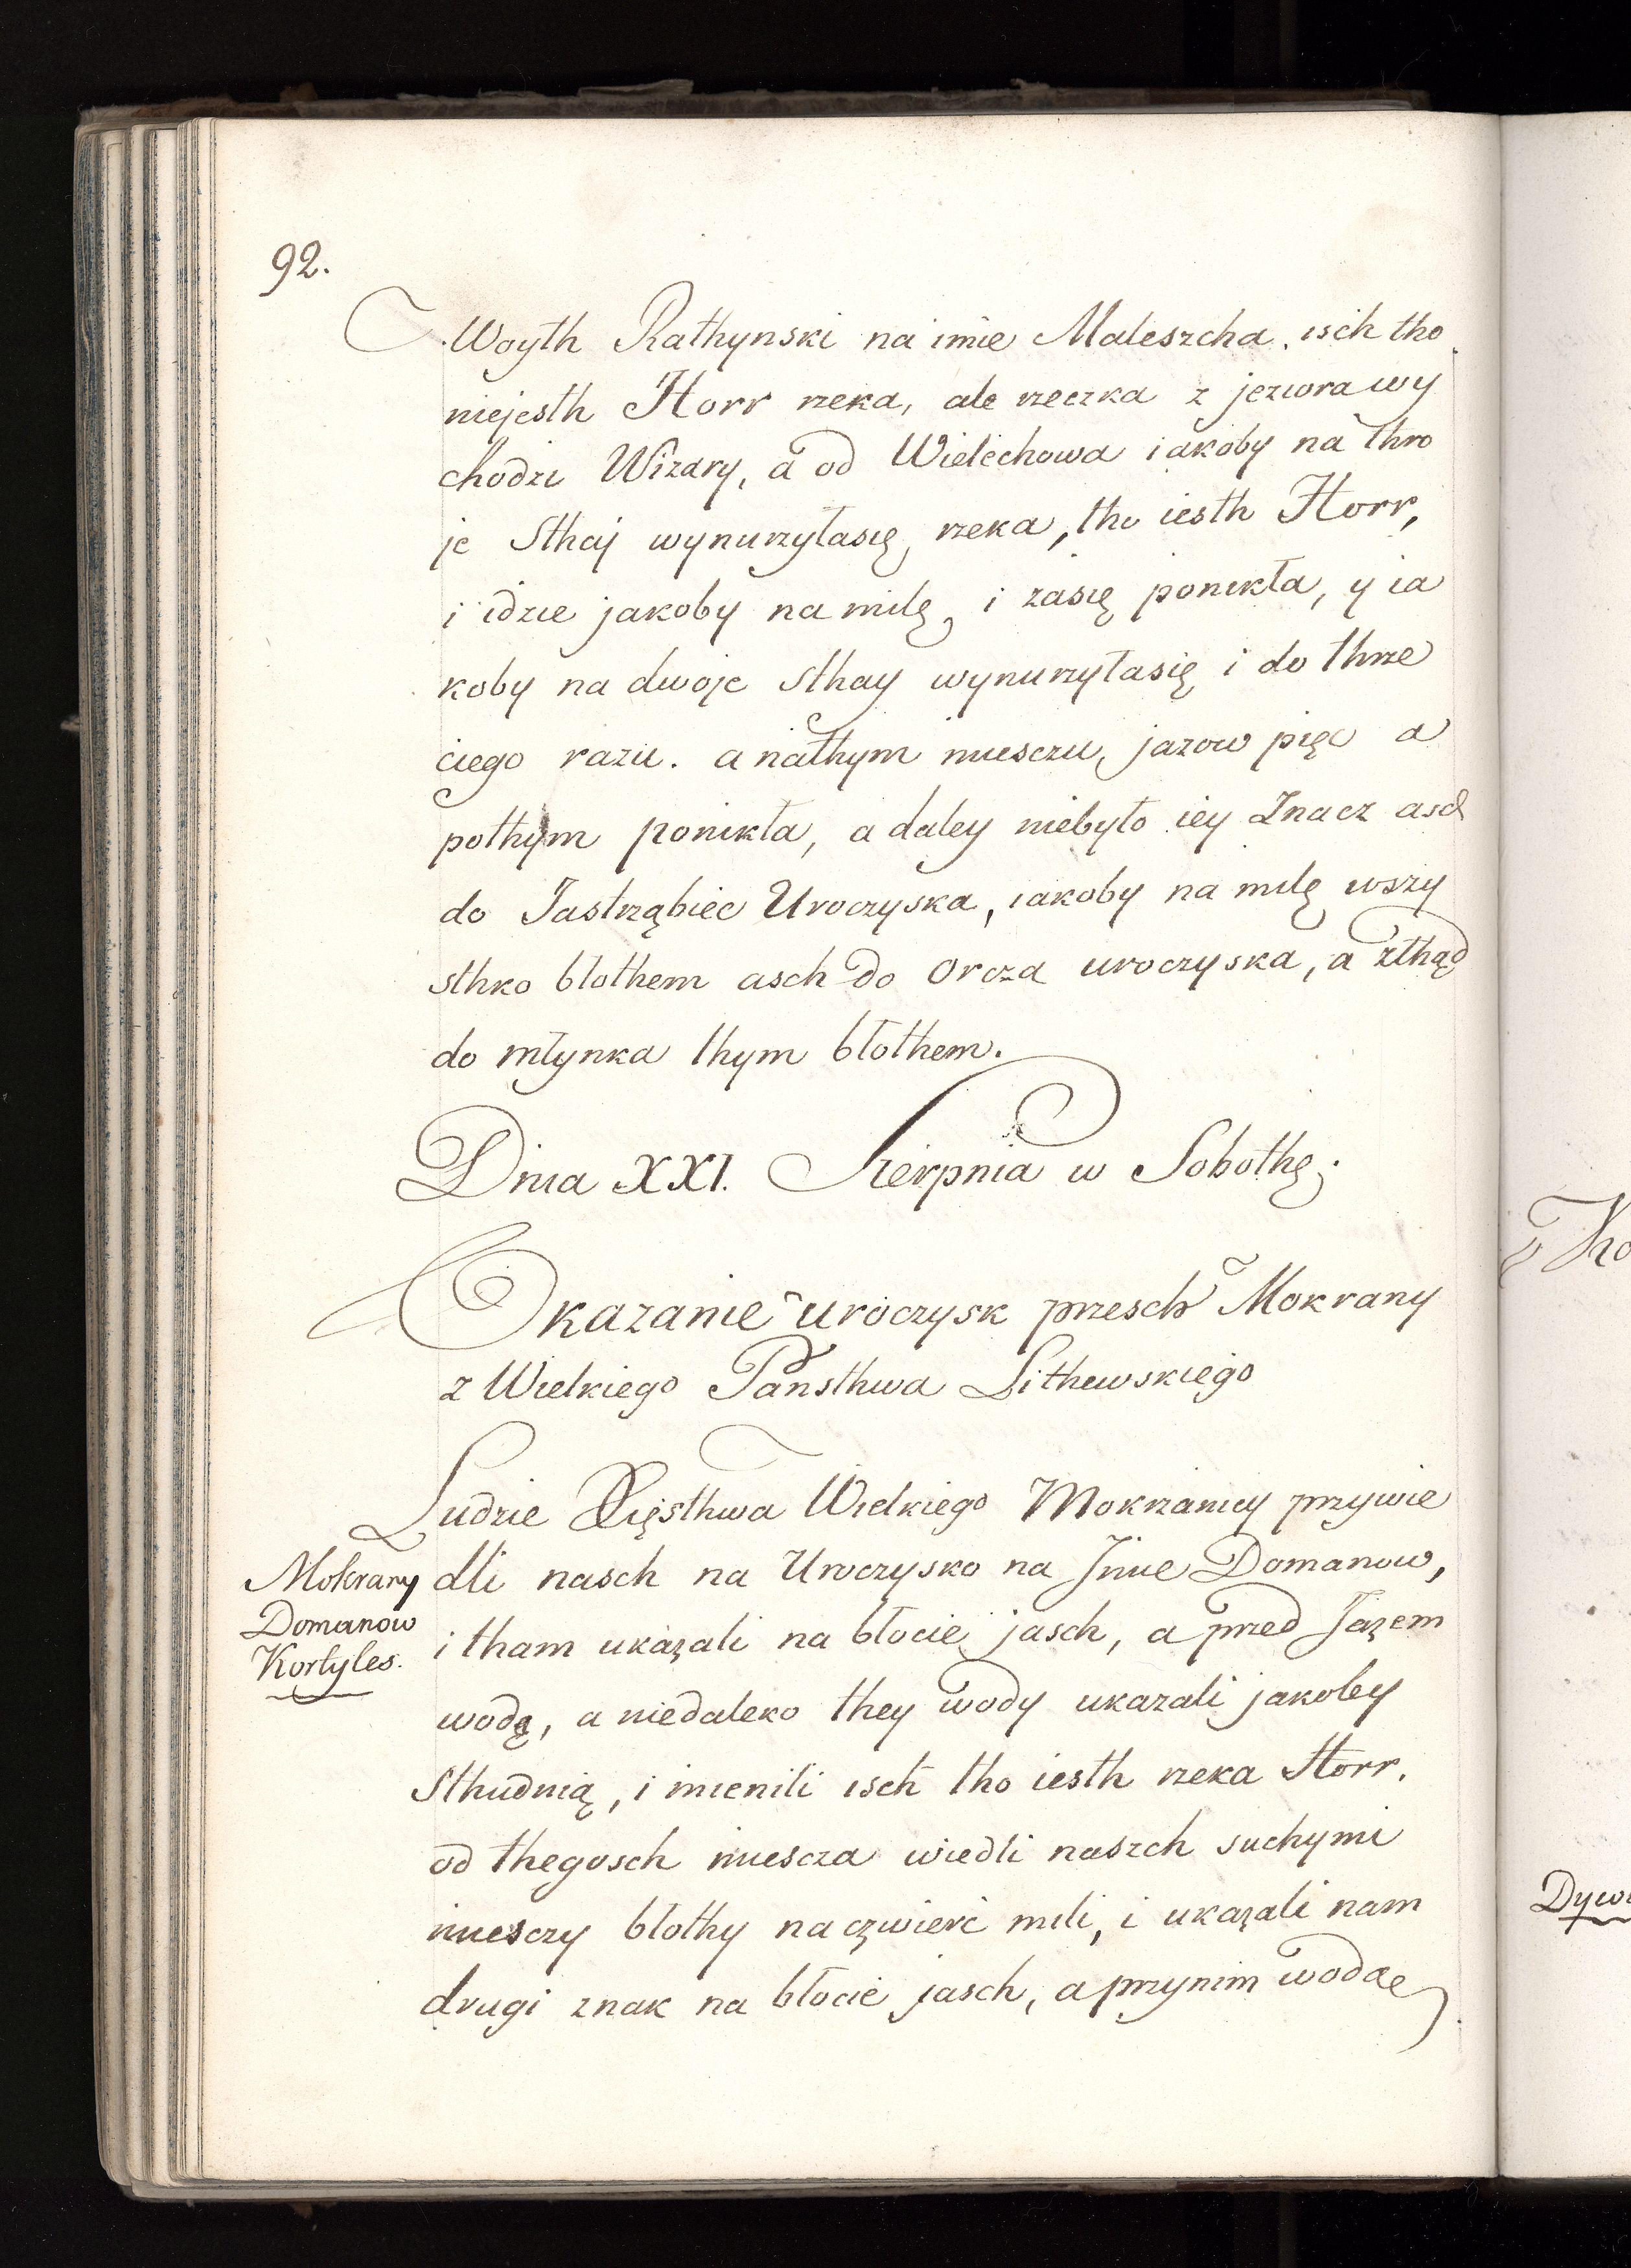 92.
Woyth Rathynski na imie Maleszcha. isch tho
niejesth Horr rzeka, ale rzeczka z jeziora wy
chodzi Wizary, a od Wielechowa iakoby na thro
je Sthaj wynurzyłasię, rzeka, tho iesth Horr,
i idzie jakoby na milę, i zasię ponikła, y ia
koby na dwoje Sthay wynurzyłasię i do thrze
ciego razu. a nathym miesczu, jazow pięc a
pothym ponikła, a daley niebyło iey Znacz asch
do Jastrząbiec Uroczyska, iakoby na milę wszy
sthko blothem asch do Orcza uroczyska, a zthąd
do młynka thym błothem.
Dnia XXI. Sierpnia w Sobothę.
Okazanie uroczysk przesch Mokrany
z Wielkiego Państhwa Lithewskiego
Ludzie Xięsthwa Wielkiego Mokrzanicy przywie
dli nasch na Uroczysko na Jmie Domanow,
i tham ukazali na błocie jasch, a pred Jazem
wodę, a niedaleko they wody ukazali jakoby
Sthudnią, i mienili isch tho iesth rzeka Horr.
od thegosch miescza wiedli naszch suchymi
miesczy blothy na czwierć mili, i ukazali nam
drugi znak na błocie jasch, a przynim wodae
Mokrany
Domanow
Kortyles.
Ko
Dyw